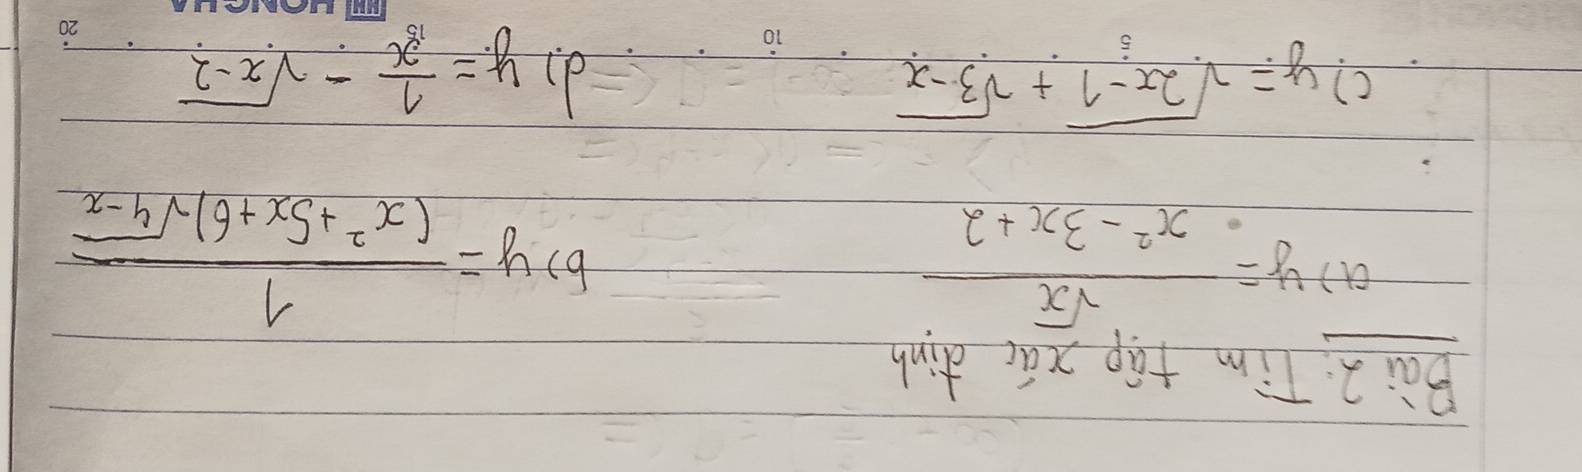 Bài 2: Tìm tập xác định
a) y = √x / (x² - 3x + 2)
b) y = 1 / ((x² + 5x + 6)√(4-x))
c) y = √(2x-1) + √(3-x)
d) y = 1/x - √(x-2)
5 10 15 20
HONG HA